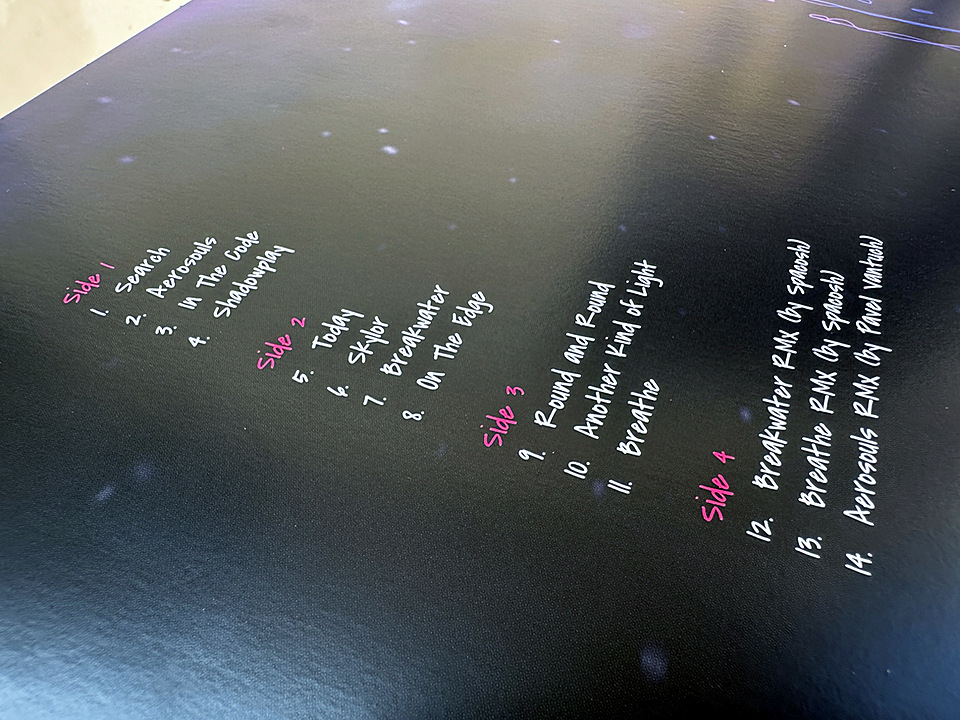 Side 1
1. Search
2. Aerosouls
3. In The Code
4. Shadowplay
Side 2
5. Today
6. Skylor
7. Breakwater
8. On The Edge
Side 3
9. Round and Round
10. Another Kind of Light
11. Breathe
Side 4
12. Breakwater RMX (by spaceshl)
13. Breathe RMX (by spaceshl)
14. Aerosouls RMX (by Pavel Vantuch)